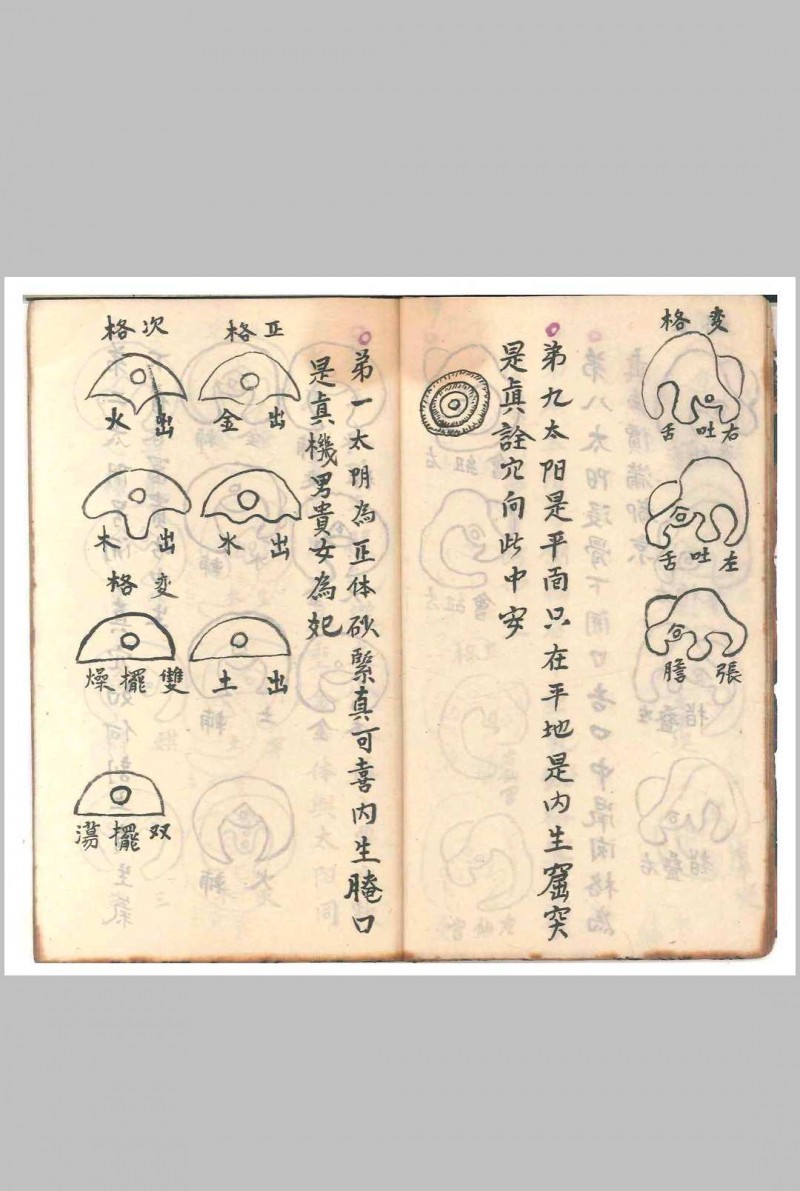 変格
右吐舌
左吐舌
張膽
弟九太阳是平面只在平地是内生窟突
是眞詮穴向此中安
弟一太阴為正体砂緊真可喜内生腌口
是真機男貴女為妃
正格
出金
出水
出土
次格
出火
出木
変格
雙擺燥
双擺蕩